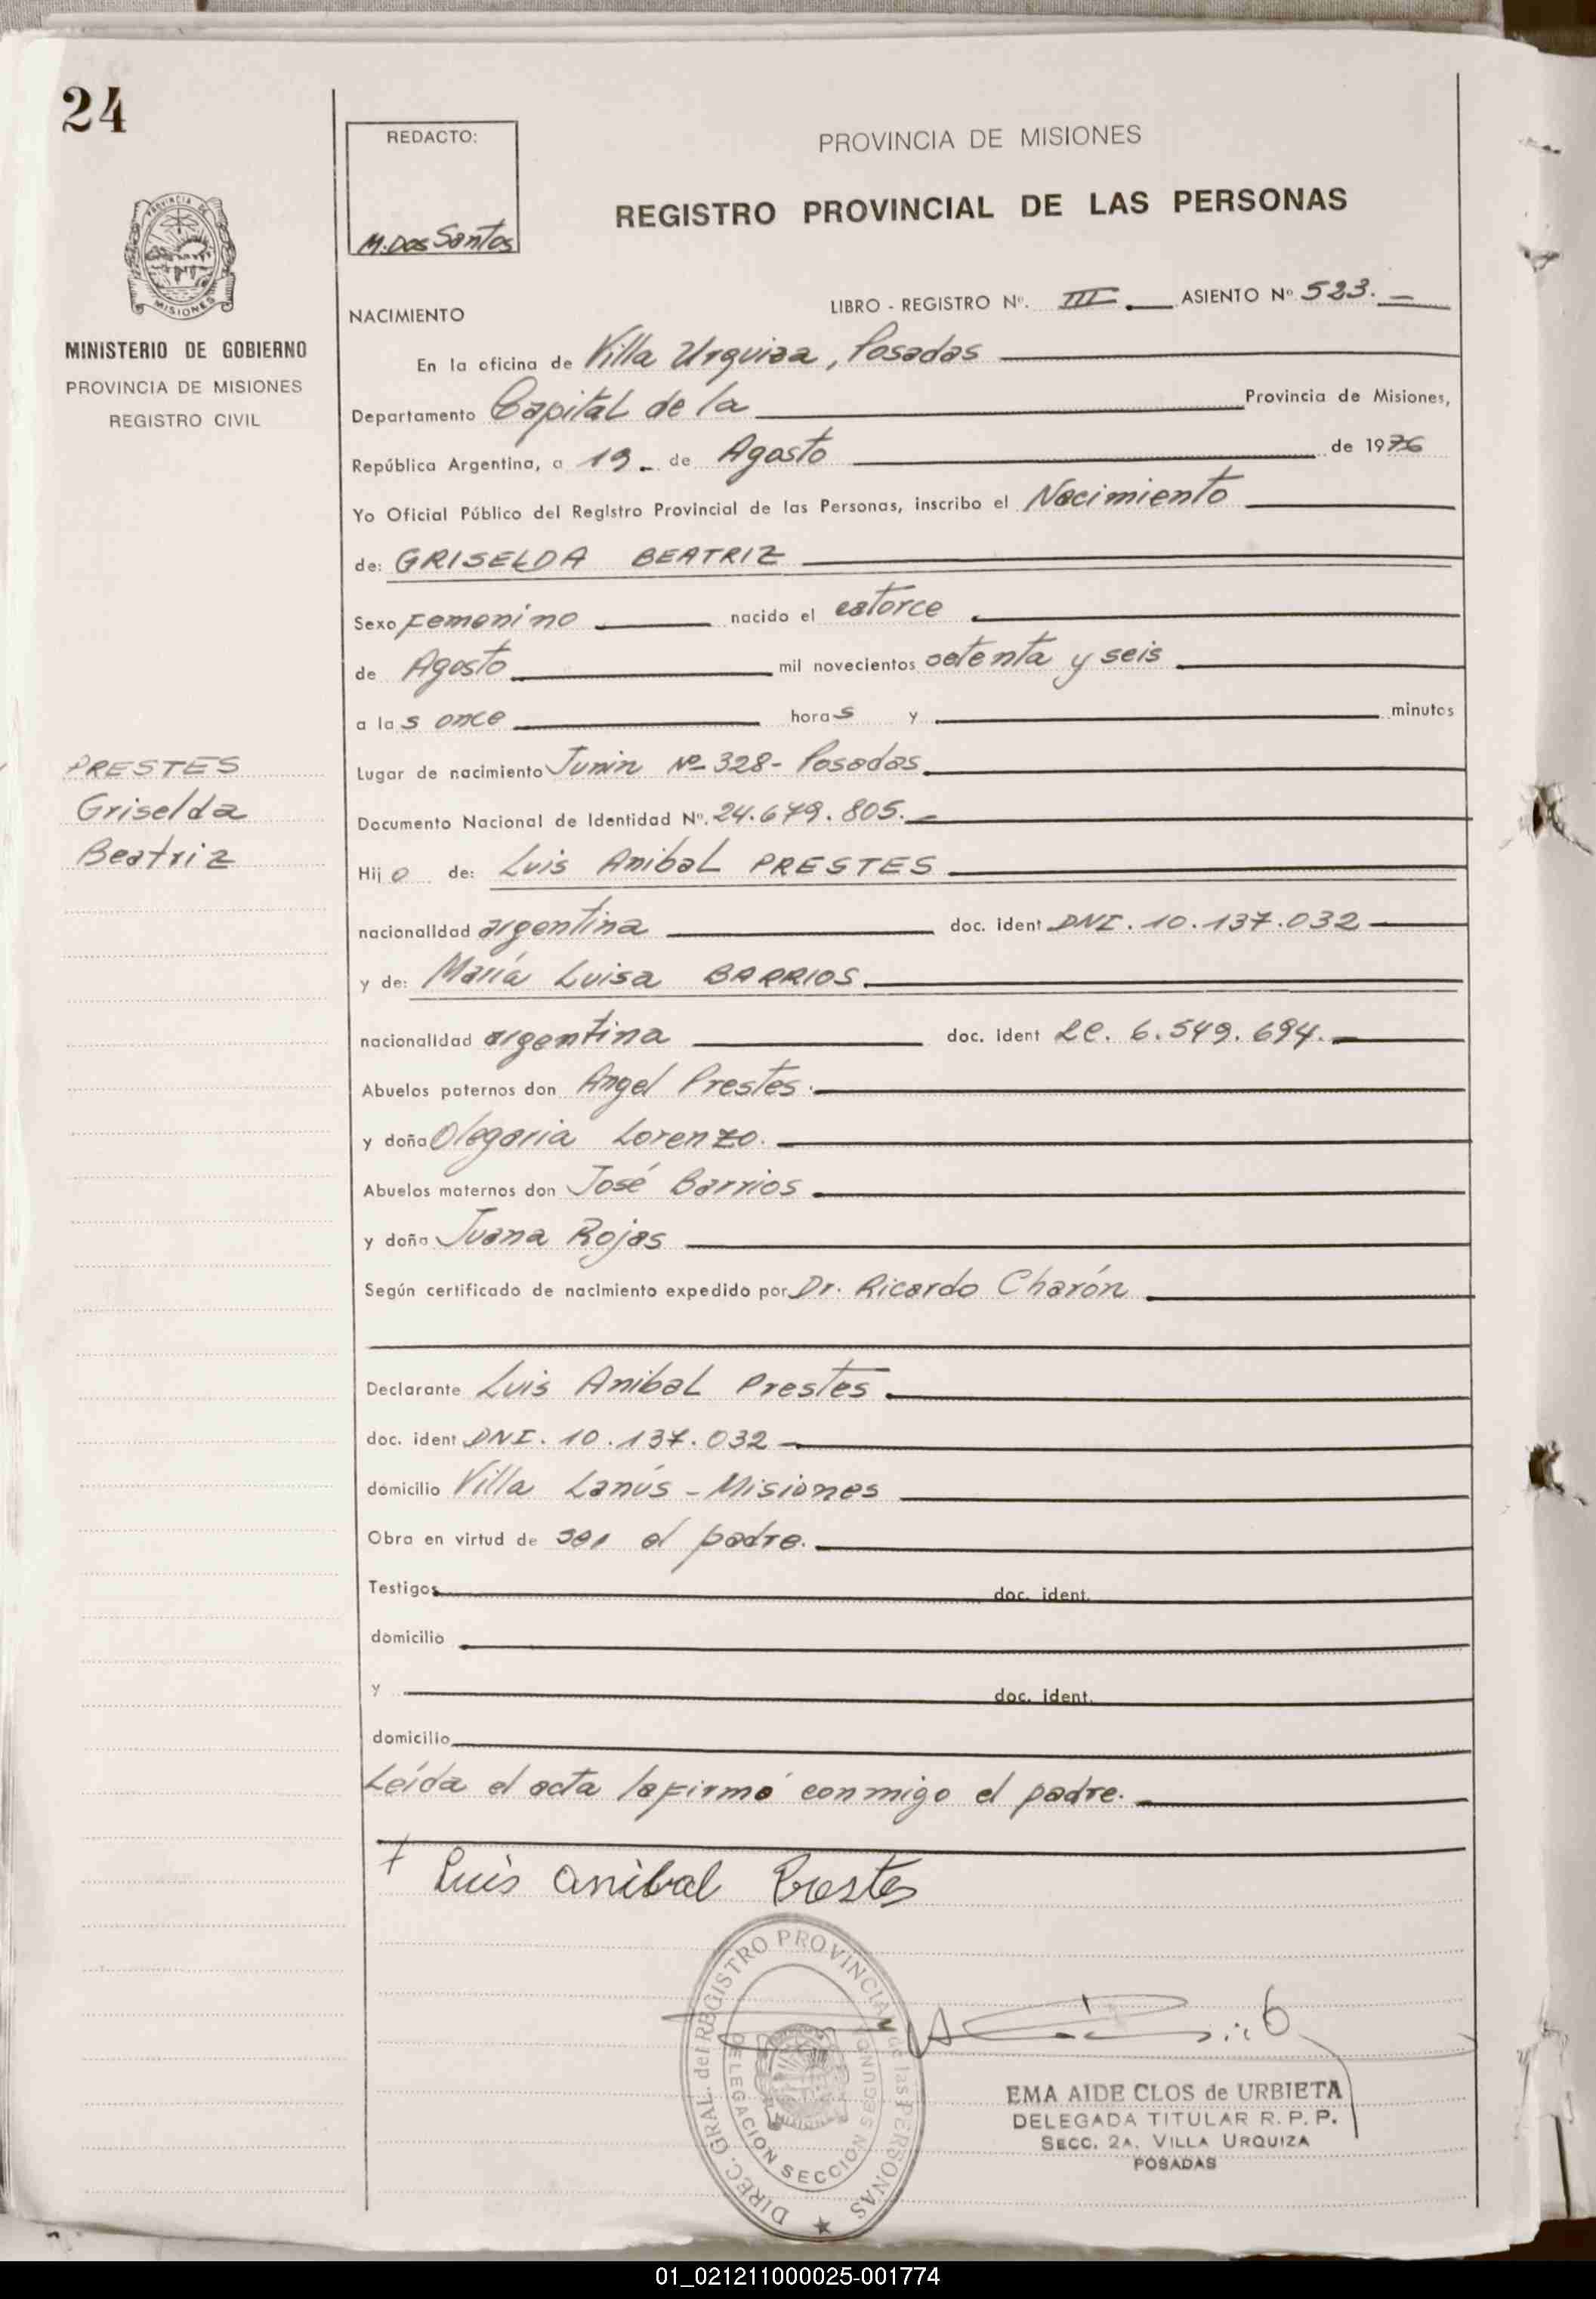 24
REDACTO:
M. Dos Santos
PROVINCIA DE MISIONES
REGISTRO PROVINCIAL DE LAS PERSONAS
PROVINCIA DE
MISIONES
MINISTERIO DE GOBIERNO
PROVINCIA DE MISIONES
REGISTRO CIVIL
NACIMIENTO
LIBRO - REGISTRO Nº. III. ASIENTO Nº 523.
En la oficina de Villa Urquiza, Posadas
Departamento Capital de la Provincia de Misiones,
República Argentina, a 19 de Agosto de 1976
Yo Oficial Público del Registro Provincial de las Personas, inscribo el Nacimiento
de: GRISELDA BEATRIZ
Sexo Femenino nacido el catorce
de Agosto mil novecientos setenta y seis
a las once horas y minutos
Lugar de nacimiento Junin Nº 328- Posadas
PRESTES
Griselda
Beatriz
Documento Nacional de Identidad Nº. 24.679.805.
Hijo de: Luis Anibal PRESTES
nacionalidad argentina doc. ident DNI. 10.137.032
y de: María Luisa BARRIOS
nacionalidad argentina doc. ident LC. 6.549.694.
Abuelos paternos don Angel Prestes.
y doña Olegaria Lorenzo.
Abuelos maternos don José Barrios
y doña Juana Rojas
Según certificado de nacimiento expedido por Dr. Ricardo Charón
Declarante Luis Anibal Prestes
doc. ident DNI. 10.137.032
domicilio Villa Lanús - Misiones
Obra en virtud de ser el padre.
Testigos doc. ident.
domicilio
y doc. ident.
domicilio
Leída el acta la firmó conmigo el padre.
Luis Anibal Prestes
DIREC. GRAL. del REGISTRO PROVINCIAL de las PERSONAS
DELEGACION SECCION SEGUNDA
EMA AIDE CLOS de URBIETA
DELEGADA TITULAR R. P. P.
SECC. 2A. VILLA URQUIZA
POSADAS
01_021211000025-001774